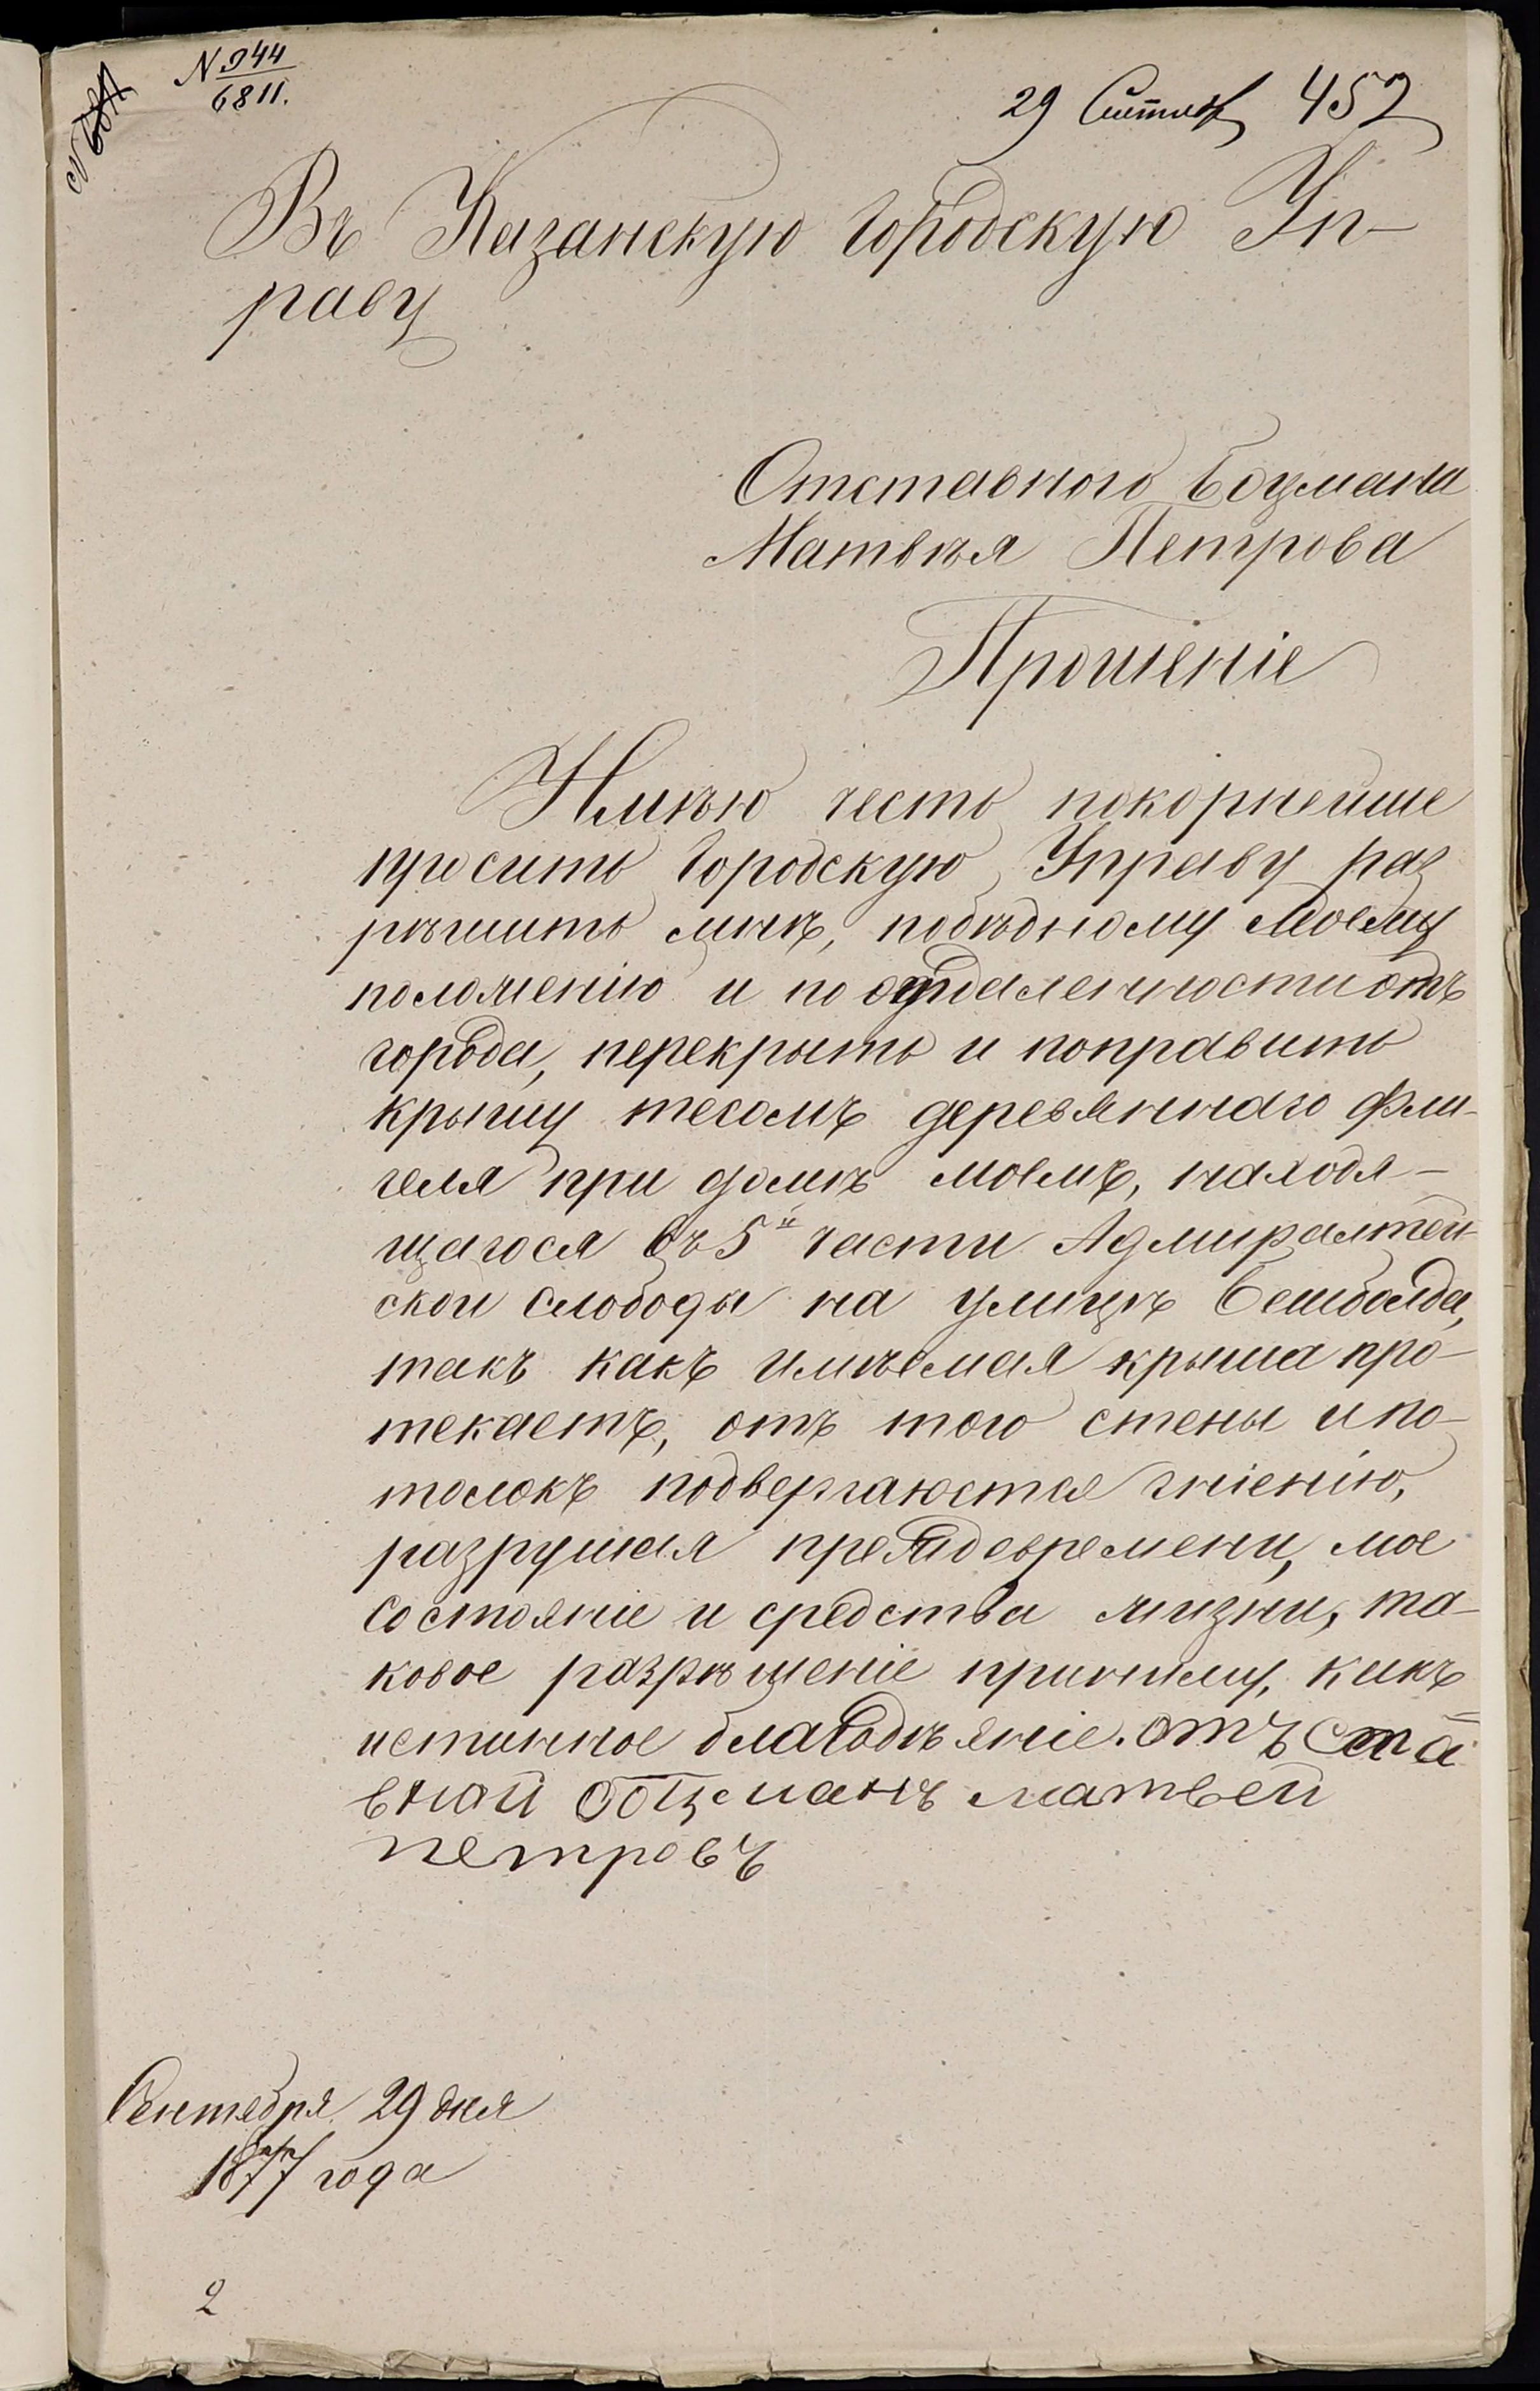 N 944
6811.
29 Сентяб 452
Въ Казанскую Городскую Уп-
раву
Отставного Боцмана
Матвѣя Петрова
Прошеніе
Имѣю честь покорнейше
просить Городскую Управу раз
рѣшить мнѣ, побѣдному моему
положенію и по отдаленности отъ
города, перекрыть и поправить
крышу тесомъ деревяннаго фли-
геля при домѣ моемъ, находя-
щагося въ 5й части Адмиралтей-
ской слободы на улицѣ Бешбалда,
такъ какъ имѣемая крыша про-
текаетъ, отъ того стены и по-
толокъ подвергаются гніенію,
разрушая преждевремени, мое
состояніе и средства жизни, та-
ковое разрѣшеніе приниму, какъ
истинное благодѣяніе. отъ ста
вной боцманъ матвей
петровъ
Сентября 29 дня
1877 года
2